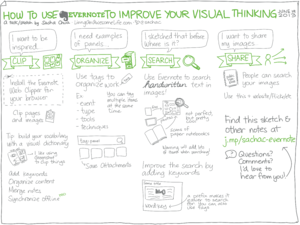 HOW TO USE EVERNOTE TO IMPROVE YOUR VISUAL THINKING
I want to be
inspired.
I need examples
of panels...
I sketched that before.
Where is it?
I want to share
my images.
CLIP
ORGANIZE
SEARCH
SHARE
Install the Evernote
Web Clipper for
your browser
Clip pages
and images
Tip: Build your vocabulary
with a visual dictionary
Add keywords
Organize content
Merge notes
Synchronize offline
Use tags to
organize your work
Ex:
- event
- type
- tools
- techniques
You can tag
multiple items
at the same
time.
Use Evernote to search
Handwritten text in
images!
not perfect,
but pretty
good
Improve the search by
adding keywords
People can search
your images.
Use this + website/Flickr/etc
Find this sketch &
other notes at
j.mp/sachac-evernote
Questions?
Comments?
I'd love to
hear from you!